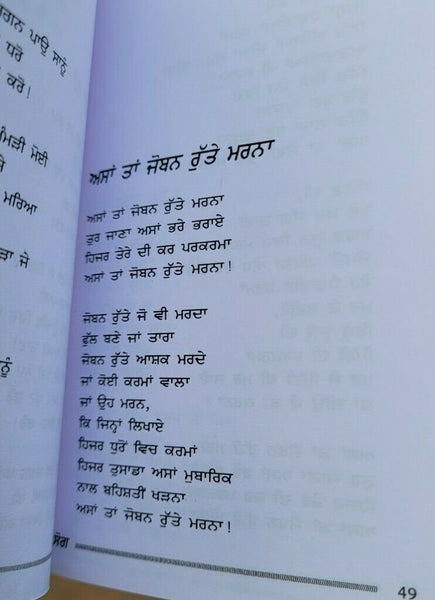 ਗਨ ਪਾਉ ਸਾਨੂੰ
ਧਰੋ
ਕਰੋ!
ਮੋਈ
ਮਰਿਆ
ਜੇ
ਨੂੰ
ਅਸਾਂ ਤਾਂ ਜੋਬਨ ਰੁੱਤੇ ਮਰਨਾ
ਅਸਾਂ ਤਾਂ ਜੋਬਨ ਰੁੱਤੇ ਮਰਨਾ
ਤੁਰ ਜਾਣਾ ਅਸਾਂ ਭਰੇ ਭਰਾਏ
ਹਿਜਰ ਤੇਰੇ ਦੀ ਕਰ ਪਰਕਰਮਾ
ਅਸਾਂ ਤਾਂ ਜੋਬਨ ਰੁੱਤੇ ਮਰਨਾ!
ਜੋਬਨ ਰੁੱਤੇ ਜੋ ਵੀ ਮਰਦਾ
ਫੁੱਲ ਬਣੇ ਜਾਂ ਤਾਰਾ
ਜੋਬਨ ਰੁੱਤੇ ਆਸ਼ਕ ਮਰਦੇ
ਜਾਂ ਕੋਈ ਕਰਮਾਂ ਵਾਲਾ
ਜਾਂ ਉਹ ਮਰਨ,
ਕਿ ਜਿਨ੍ਹਾਂ ਲਿਖਾਏ
ਹਿਜਰ ਧੁਰੋਂ ਵਿਚ ਕਰਮਾਂ
ਹਿਜਰ ਤੁਸਾਡਾ ਅਸਾਂ ਮੁਬਾਰਿਕ
ਨਾਲ ਬਹਿਸ਼ਤੀਂ ਖੜਨਾ
ਅਸਾਂ ਤਾਂ ਜੋਬਨ ਰੁੱਤੇ ਮਰਨਾ!
ਸੋਗ
49